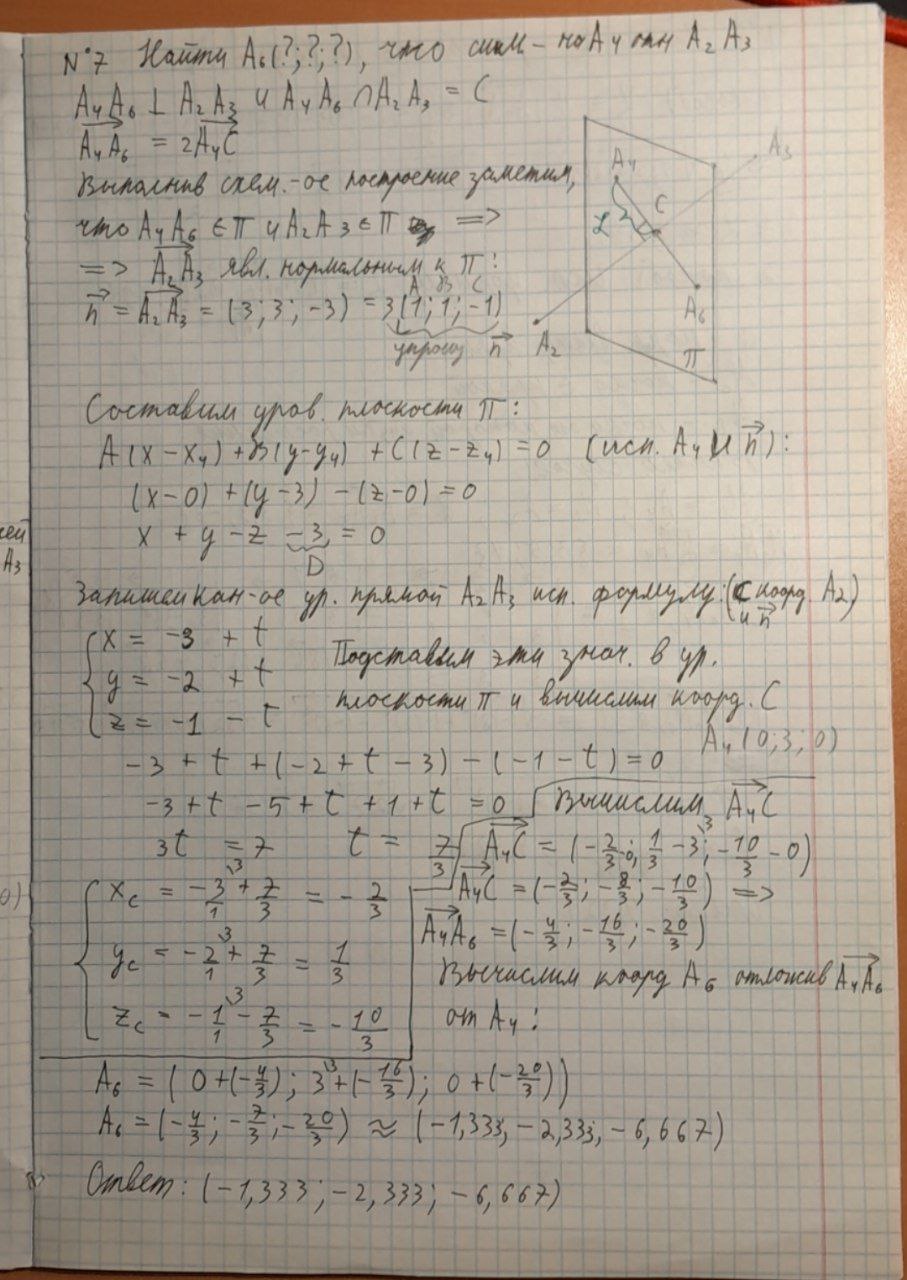 N°7 Найти A₆(?;?;?), что сим-но A₄ отн A₂A₃
A₄A₆ ⊥ A₂A₃ и A₄A₆ ∩ A₂A₃ = C
A₄A₆ = 2A₄C
Выполнив схем.-ое построение заметим,
что A₄A₆ ∈ П и A₂A₃ ∈ П =>
=> A₂A₃ явл. нормальным к П:
A B C
n = A₂A₃ = (3; 3; -3) = 3(1; 1; -1)
упрощ n
A₄
A₃
C
L
A₆
A₂
П
Составим уров. плоскости П:
A(x-x₄) + B(y-y₄) + C(z-z₄) = 0 (исп. A₄ и n):
(x-0) + (y-3) - (z-0) = 0
x + y - z - 3 = 0
D
сей
A₃
Запишем кан-ое ур. прямой A₂A₃ исп. формулу: (с коорд. A₂)
и n
x = -3 + t
y = -2 + t
z = -1 - t
Подставим эти знач. в ур.
плоскости П и вычислим коорд. C
A₄(0; 3; 0)
-3 + t + (-2 + t - 3) - (-1 - t) = 0
-3 + t - 5 + t + 1 + t = 0
3t = 7 t = 7/3
Вычислим A₄C
A₄C = (-2/3 - 0; 1/3 - 3\3; -10/3 - 0)
A₄C = (-2/3; -8/3; -10/3) =>
A₄A₆ = (-4/3; -16/3; -20/3)
Вычислим коорд A₆ отложив A₄A₆
от A₄:
0)
x_C = -3/1\3 + 7/3 = -2/3
y_C = -2/1\3 + 7/3 = 1/3
z_C = -1/1\3 - 7/3 = -10/3
A₆ = (0 + (-4/3); 3\3 + (-16/3); 0 + (-20/3))
A₆ = (-4/3; -7/3; -20/3) ≈ (-1,333; -2,333; -6,667)
Ответ: (-1,333; -2,333; -6,667)